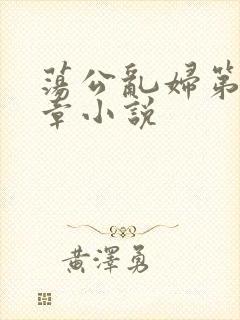 蕩公亂婦第
章小說
黃澤勇